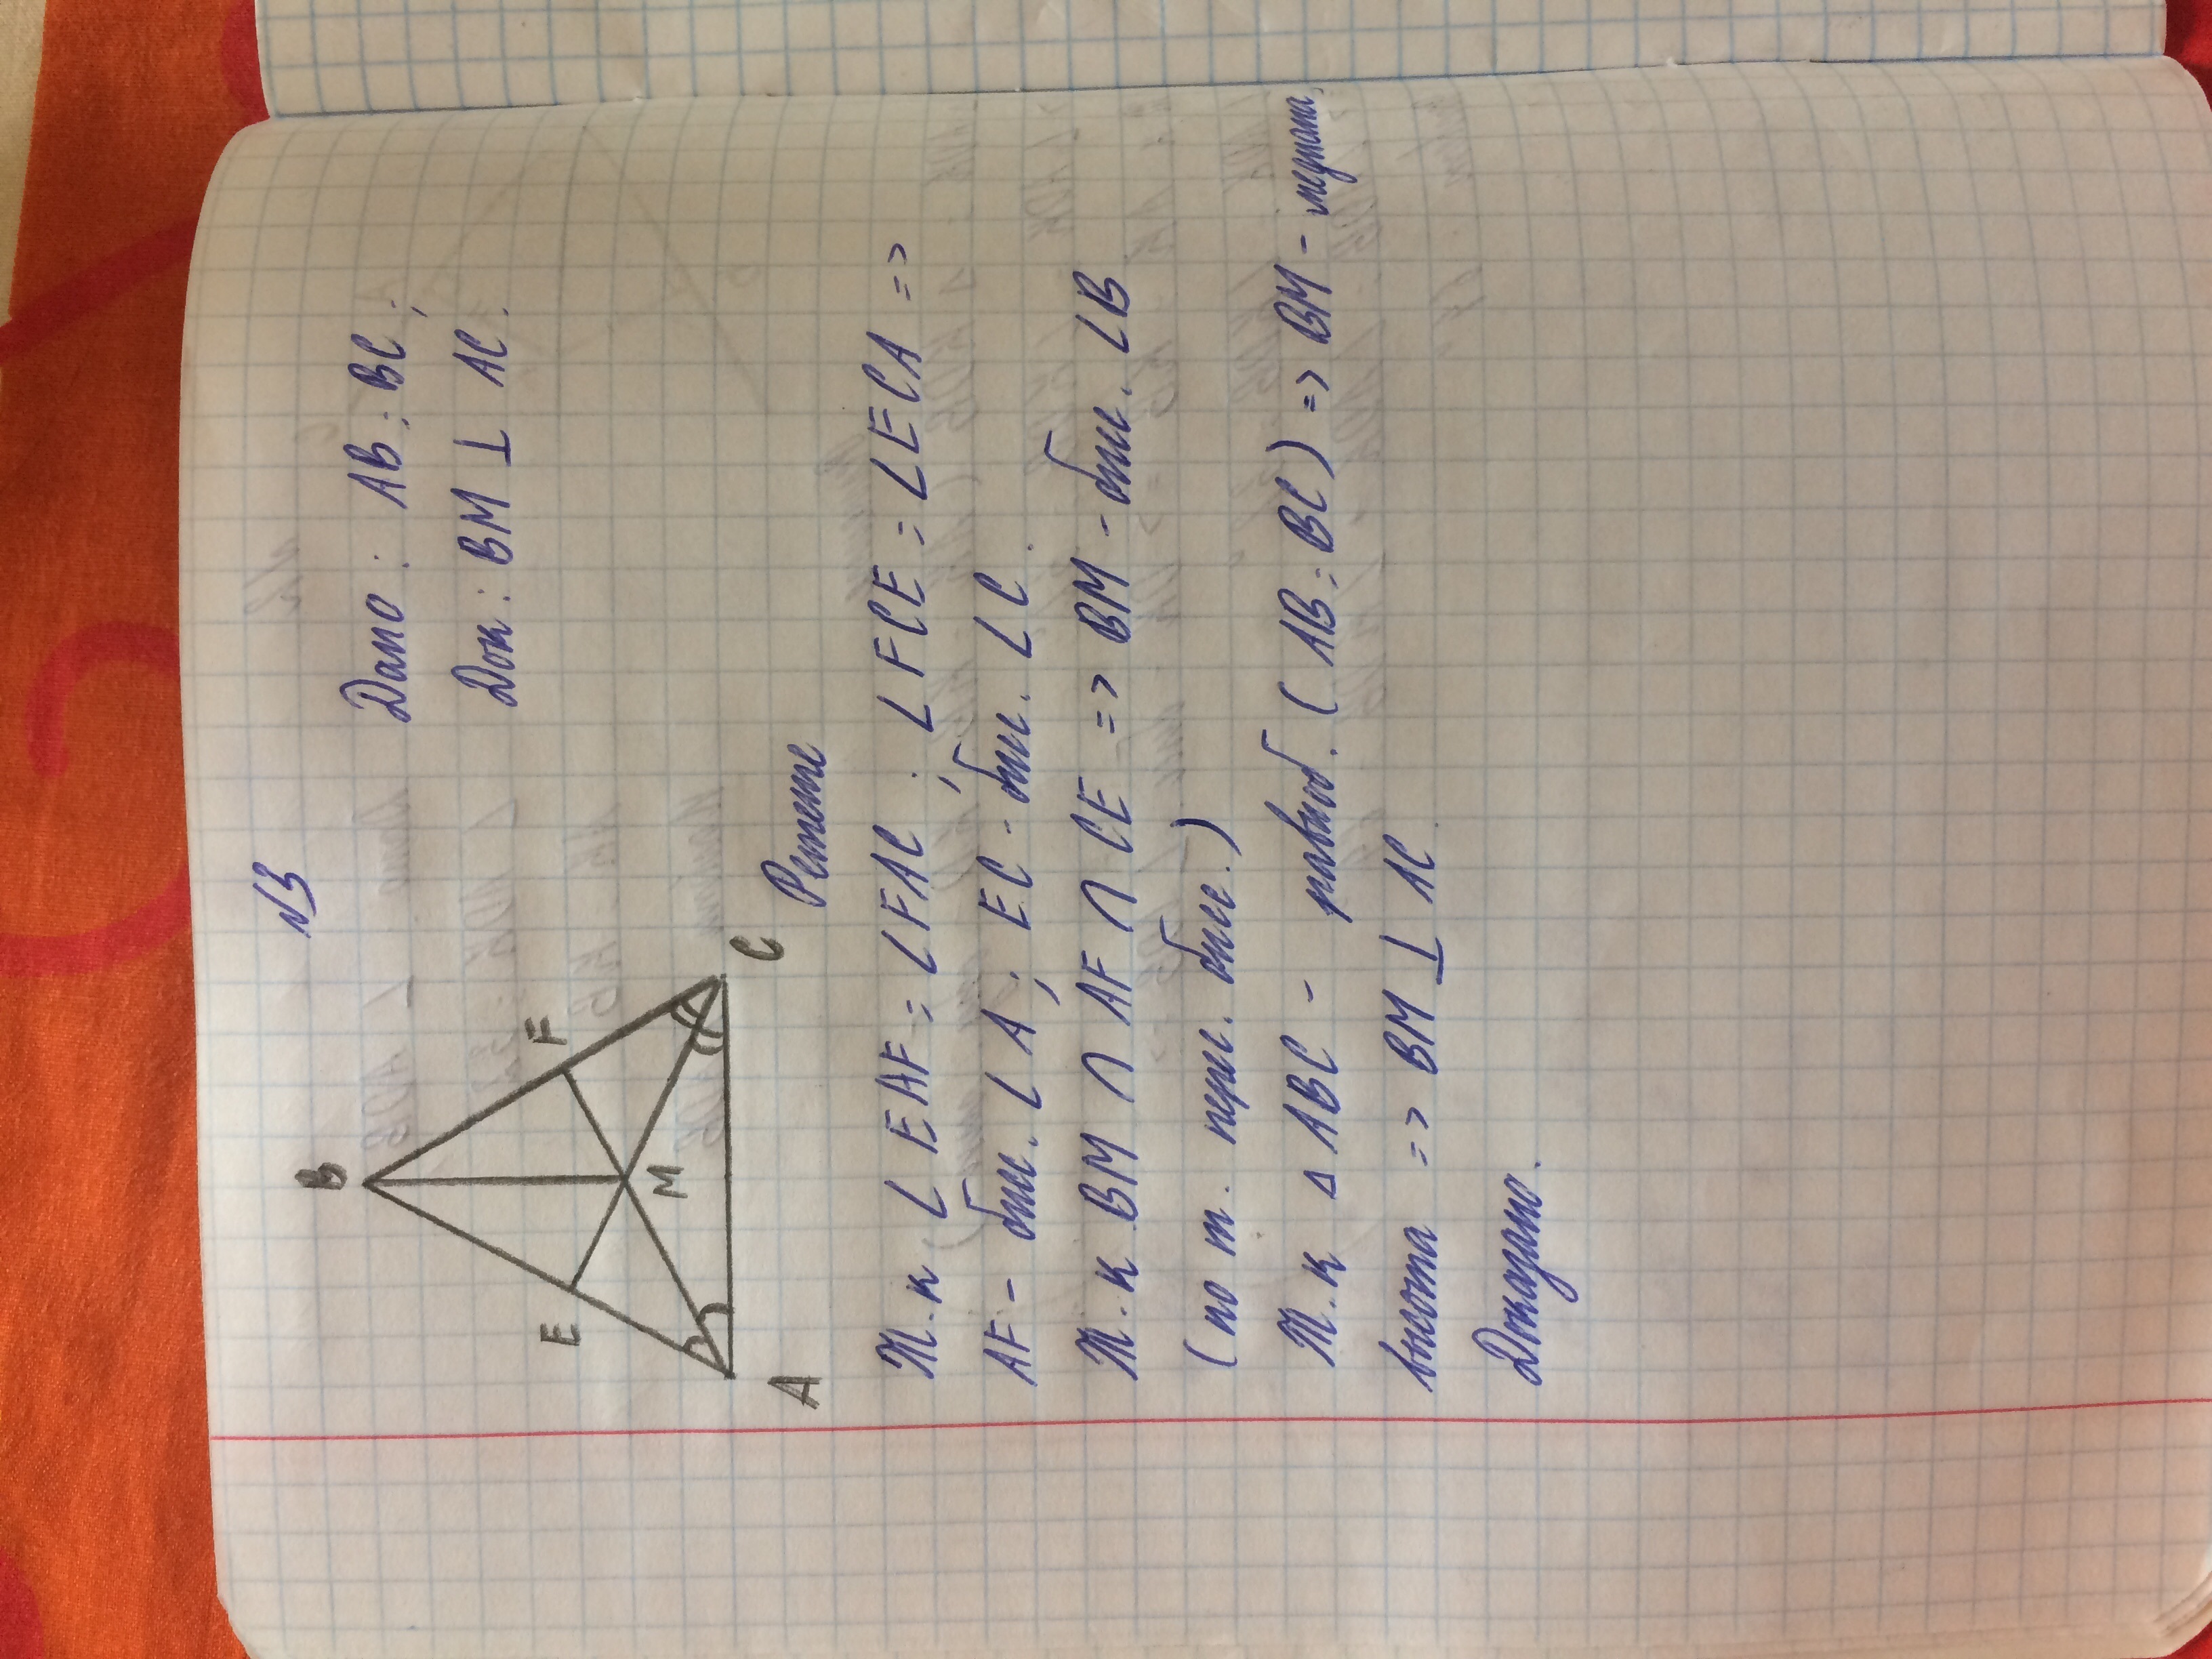 №3
B
E
F
M
A
C
Дано: AB = BC;
Док: BM ⊥ AC.
Решение
Т.к ∠EAF = ∠FAC; ∠FCE = ∠ECA =>
AF - бис. ∠A; EC - бис. ∠C.
Т.к BM ∩ AF ∩ CE => BM - бис. ∠B
(по т. перес. бисс.)
Т.к △ABC - равноб. (AB = BC) => BM - медиана,
высота => BM ⊥ AC.
Доказано.